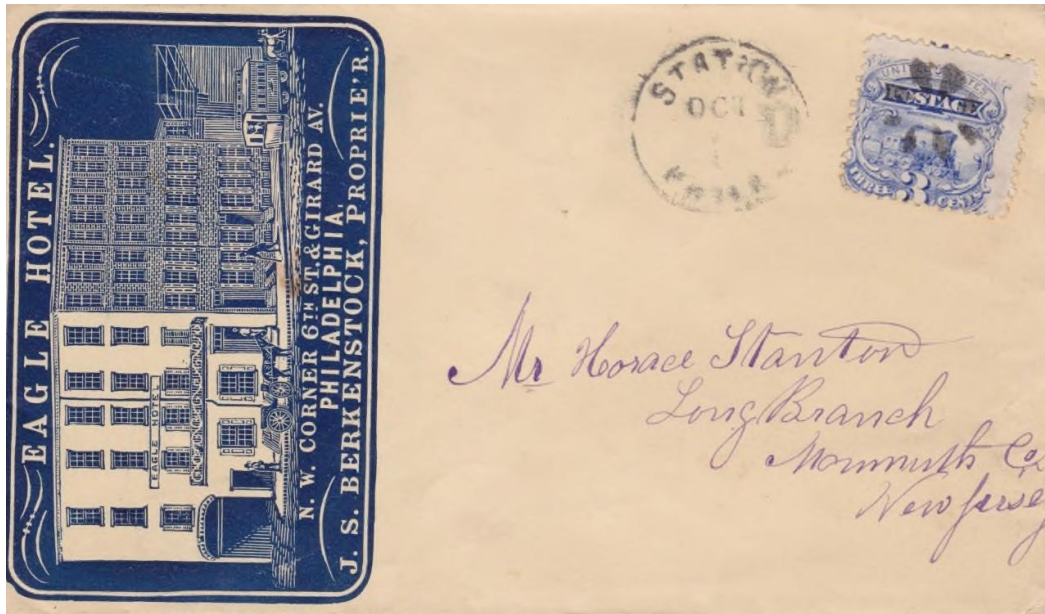 EAGLE HOTEL.
EAGLE HOTEL
N. W. CORNER 6TH ST. & GIRARD AV.
PHILADELPHIA.
J. S. BERKENSTOCK, PROPRIE'R.
STATION
OCT
1
UNITED STATES
POSTAGE
THREE 3 CENTS
Mr Horace Stanton
Long Branch
Monmouth Co
New Jersey